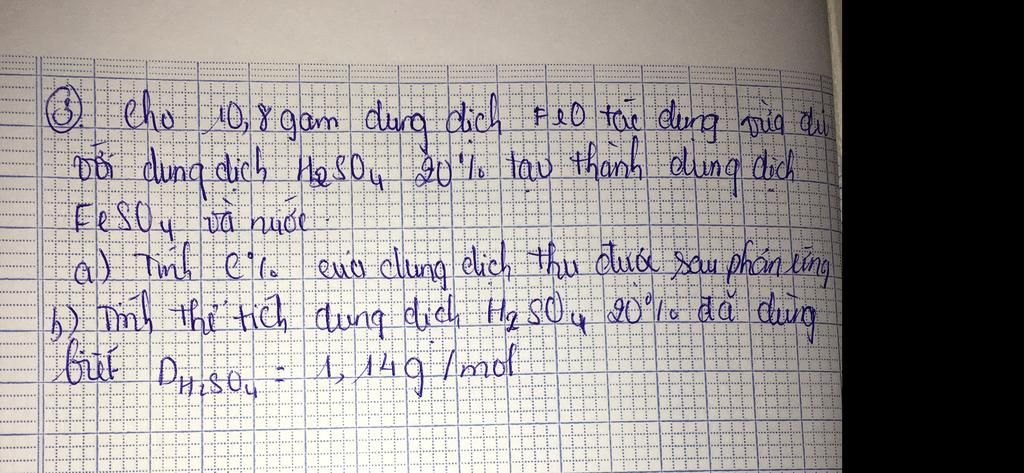 ③ Cho 10,8 gam dung dịch FeO tác dụng vừa đủ
với dung dịch H₂SO₄ 20% tạo thành dung dịch
FeSO₄ và nước.
a) Tính C% của dung dịch thu được sau phản ứng
b) Tính thể tích dung dịch H₂SO₄ 20% đã dùng
biết D H₂SO₄ = 1,14g/mol